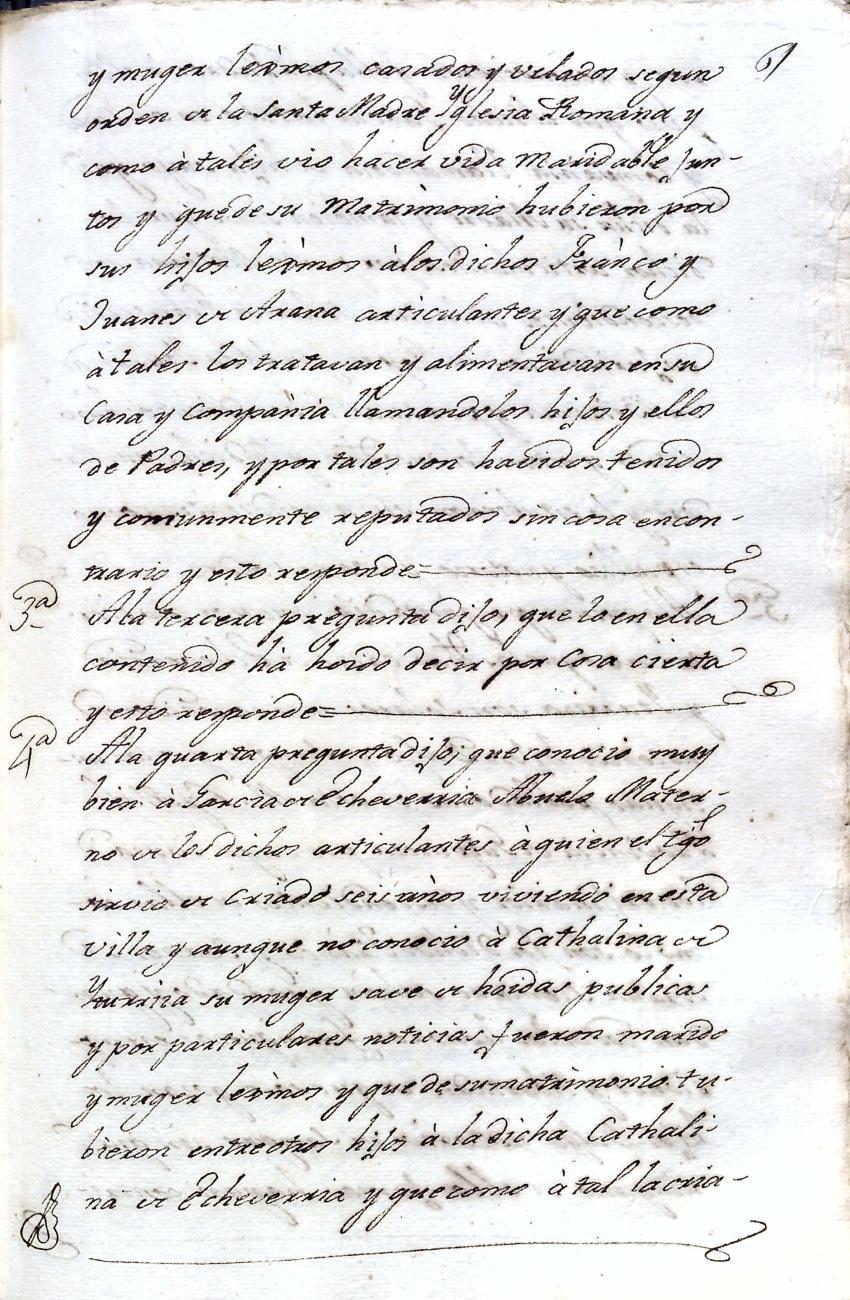 y muger lexmos casados y velados segun
orden de la Santa Madre Yglesia Romana y
como à tales vio hacer vida maridable Jun-
tos y que de su Matrimonio hubieron por
sus hijos lexmos à los dichos Franco y
Juanes de Arana articulantes y que como
à tales los tratavan y alimentavan en su
Casa y Compañia llamandolos hijos y ellos
de Padres, y por tales son havidos tenidos
y comunmente reputados sin cosa encon-
trario y esto responde=
3a
A la tercera pregunta dijo, que lo en ella
contenido hà hoido decir por Cosa cierta
y esto responde=
4a
A la quarta pregunta dijo; que conocio muy
bien à Garcia de Echeverria Abuelo Mater-
no de los dichos articulantes à quien el tgo
sirvio de Criado seis años viviendo en esta
villa y aunque no conocio à Cathalina de
Yturriia su muger save de hoidas publicas
y por particulares noticias fueron marido
y muger lexmos y que de su matrimonio tu-
bieron entre otros hijos à la dicha Cathali-
na de Echeverria y que como à tal la cria-